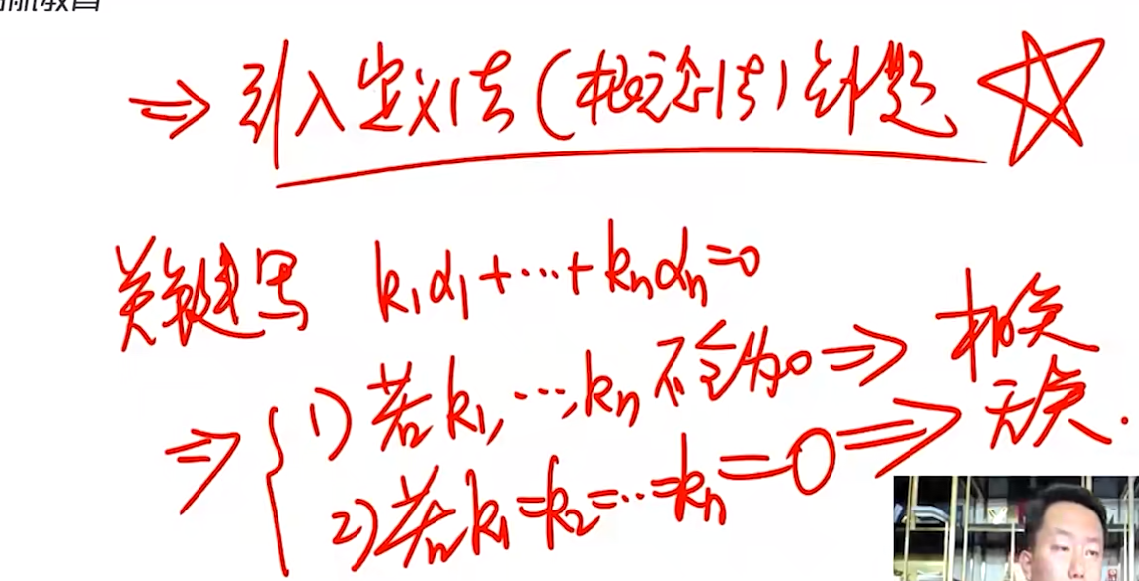 ⇒ 引入定义法(概念法)解题 ☆
关键写 k₁α₁+⋯+kₙαₙ=0
⇒ { 1) 若k₁,⋯,kₙ不全为0 ⇒ 相关
2) 若k₁=k₂=⋯=kₙ=0 ⇒ 无关.